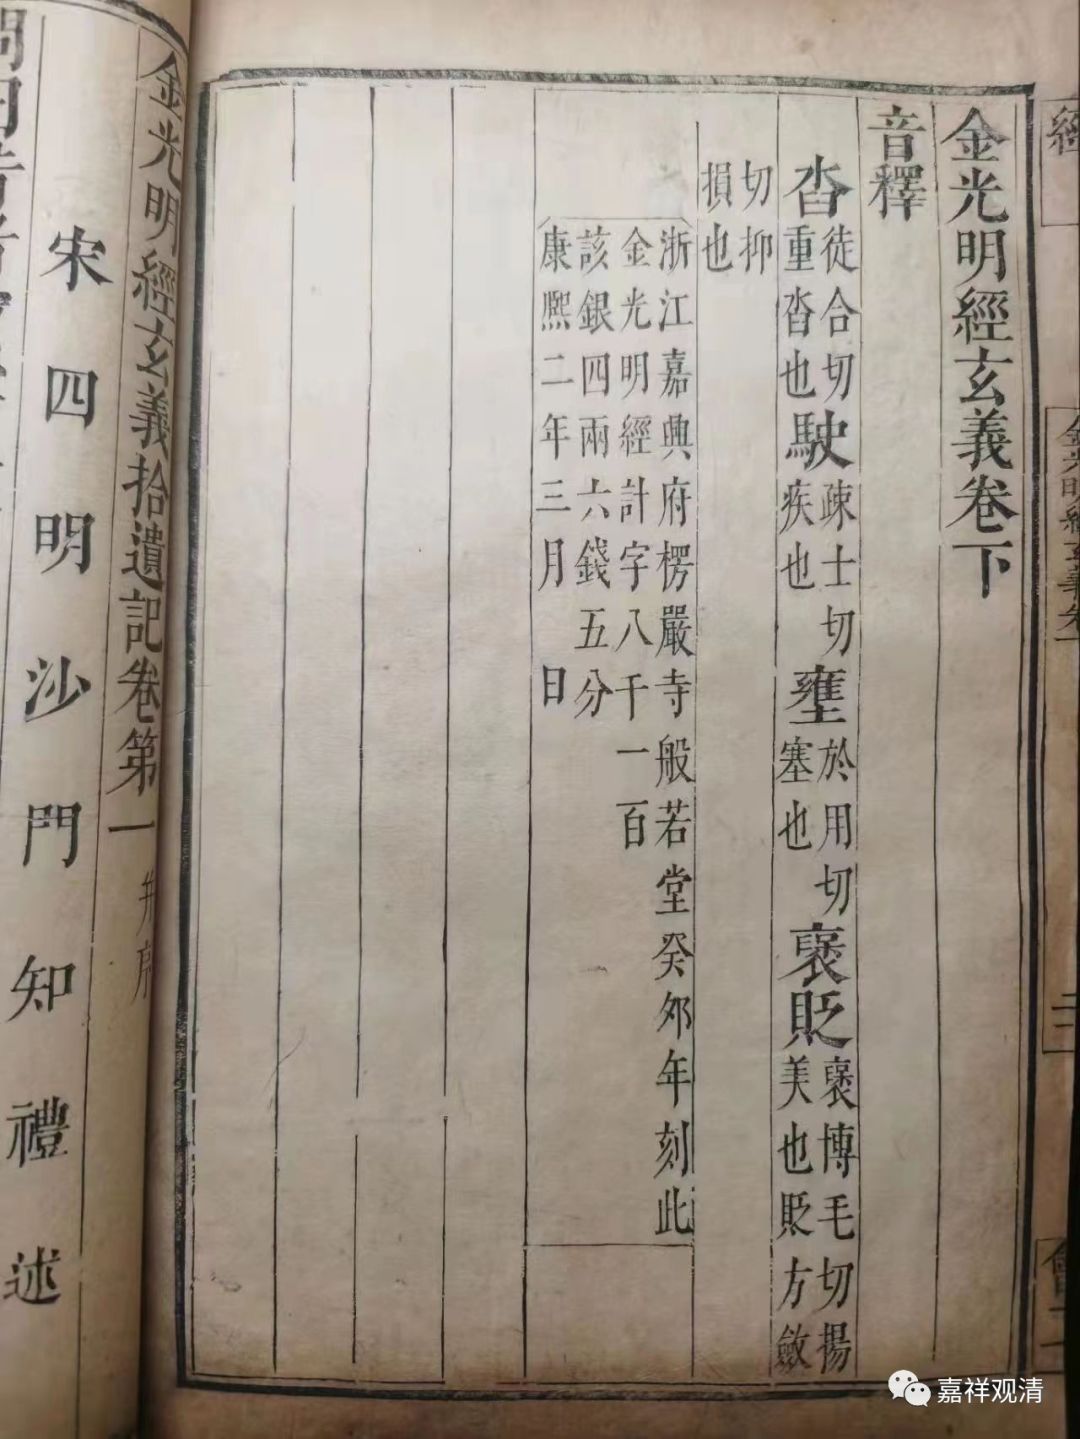 金光明經玄義卷下
音釋
沓徒合切重沓也駛疎士切疾也壅於用切塞也裦貶裦博毛切揚美也貶方斂
切抑損也
浙江嘉興府楞嚴寺般若堂癸夘年刻此
金光明經計字八千一百
該銀四兩六錢五分
康熈二年三月 日
金光明經玄義拾遺記卷第一
宋四明沙門知禮述
經
金光明經玄義卷
嘉祥观清